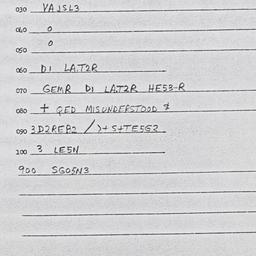 030 VAJSL3
040 0
050 0
060 DI LA.T2R
070 GEMR DI LAT2R HE53-R
080 + QED MISUNDERSTOOD
090 3D2REP2 /)+ S+TE5G3
100 3 LE5N
900 SGO5N3